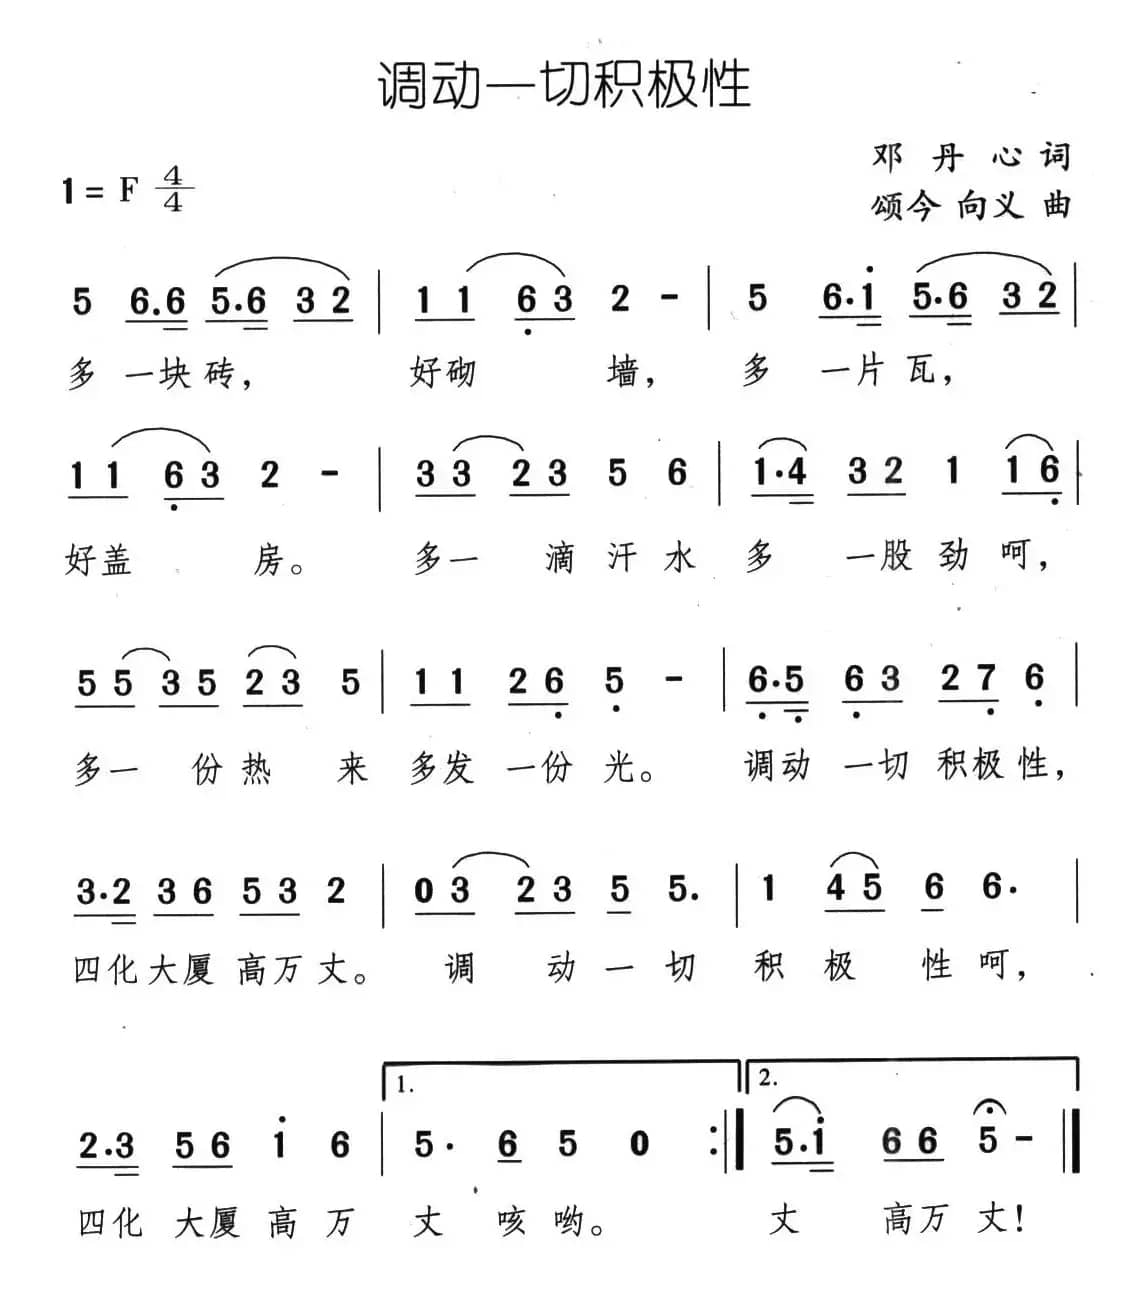 调动一切积极性
邓丹心词
1=F 4/4
颂今 向义 曲
5 6.6 5.6 3 2 | 1 1 6 3 2 - | 5 6.i 5.6 3 2 |
多一块砖，好砌墙，多一片瓦，
1 1 6 3 2 - | 3 3 2 3 5 6 | 1.4 3 2 1 1 6 |
好盖房。多一滴汗水多一股劲呵，
5 5 3 5 2 3 5 | 1 1 2 6 5 - | 6.5 6 3 2 7 6 |
多一份热来多发一份光。调动一切积极性，
3.2 3 6 5 3 2 | 0 3 2 3 5 5. | 1 4 5 6 6. |
四化大厦高万丈。调动一切积极性呵，
1. 2.
2.3 5 6 i 6 | 5. 6 5 0 :| 5.i 6 6 5 - ||
四化大厦高万丈咳哟。丈高万丈！